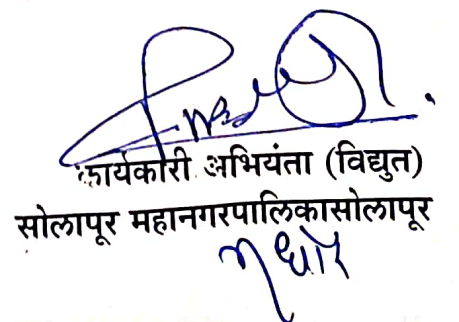 कार्यकारी अभियंता (विद्युत)
सोलापूर महानगरपालिकासोलापूर